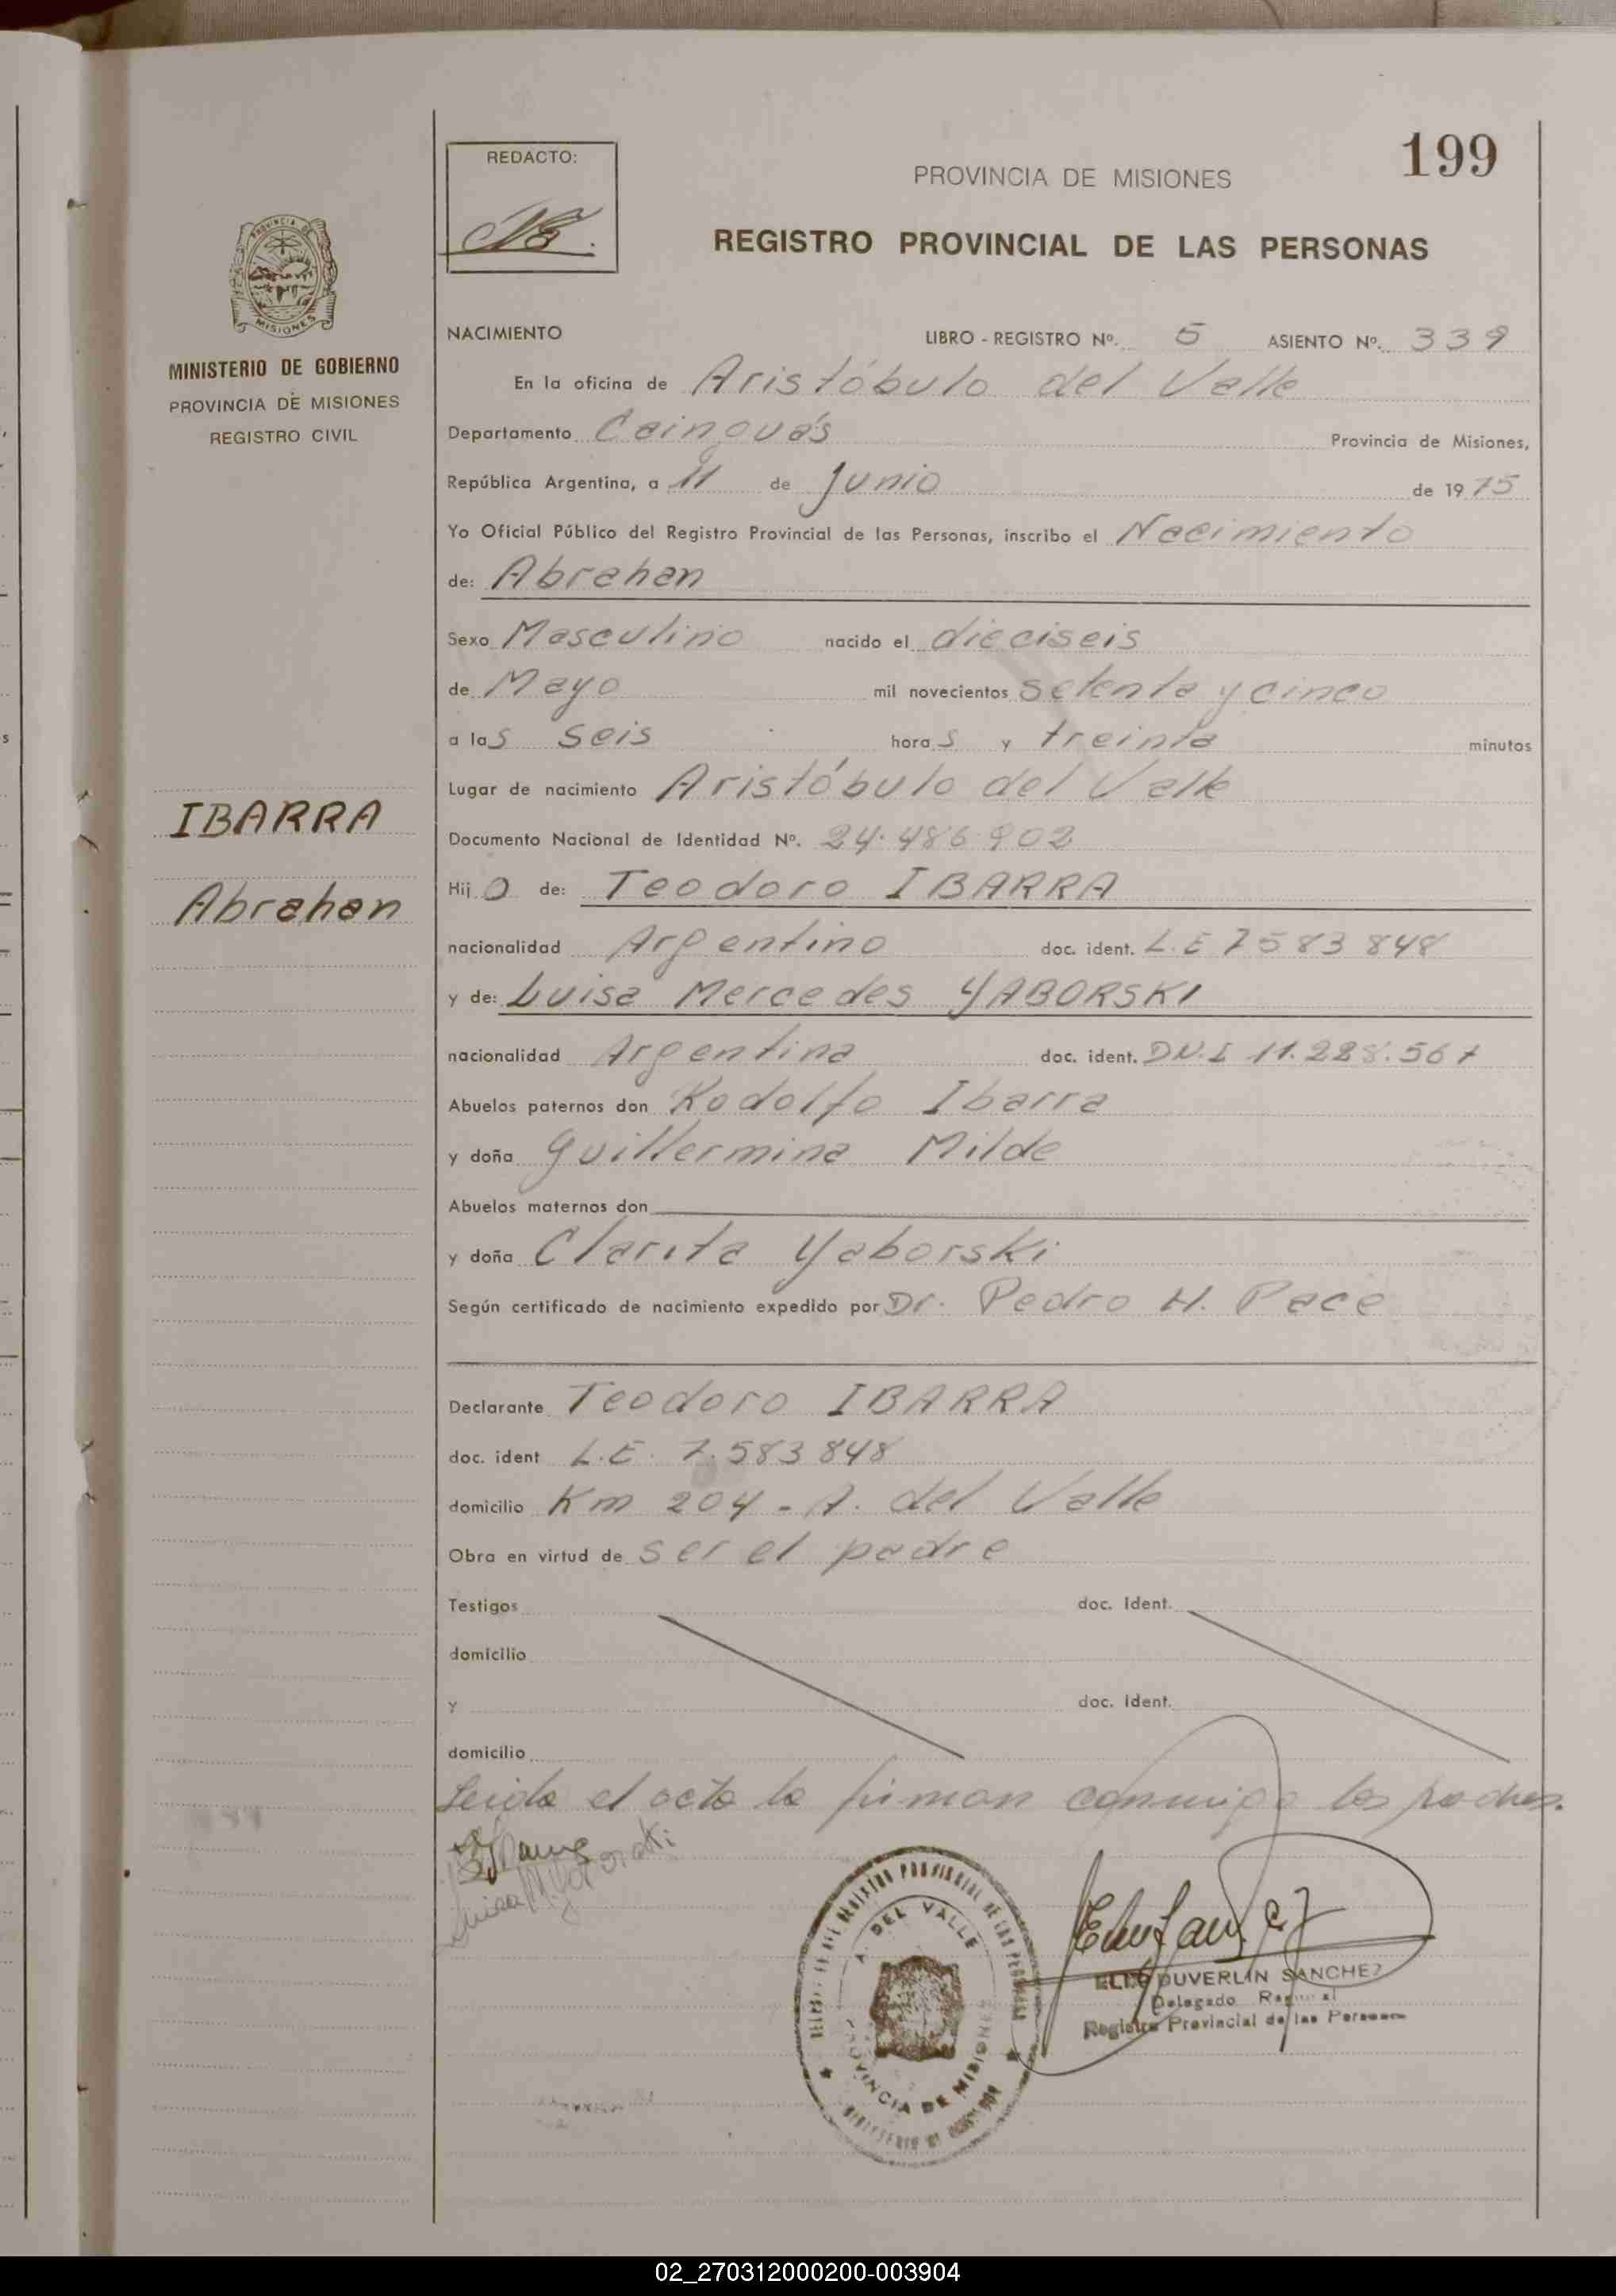 199
REDACTO:
PROVINCIA DE MISIONES
REGISTRO PROVINCIAL DE LAS PERSONAS
PROVINCIA DE
MISIONES
MINISTERIO DE GOBIERNO
PROVINCIA DE MISIONES
REGISTRO CIVIL
IBARRA
Abrahan
NACIMIENTO LIBRO - REGISTRO Nº. 5 ASIENTO Nº. 339
En la oficina de Aristóbulo del Valle
Departamento Cainguás Provincia de Misiones,
República Argentina, a 11 de Junio de 1975
Yo Oficial Público del Registro Provincial de las Personas, inscribo el Nacimiento
de: Abrahan
Sexo Masculino nacido el dieciseis
de Mayo mil novecientos setenta y cinco
a las seis horas y treinta minutos
Lugar de nacimiento Aristóbulo del Valle
Documento Nacional de Identidad Nº. 24.486.902
Hijo de: Teodoro IBARRA
nacionalidad Argentino doc. ident. L.E 7583848
y de: Luisa Mercedes YABORSKI
nacionalidad Argentina doc. ident. DN.I 11.228.567
Abuelos paternos don Rodolfo Ibarra
y doña Guillermina Milde
Abuelos maternos don
y doña Clarita Yaborski
Según certificado de nacimiento expedido por Dr. Pedro H. Pace
Declarante Teodoro IBARRA
doc. ident L.E. 7.583848
domicilio Km 204 - A. del Valle
Obra en virtud de ser el padre
Testigos doc. ident.
domicilio
y doc. ident.
domicilio
Leida el acta la firman conmigo los padres.
Luisa M Yaborski
A. DEL VALLE
PROVINCIA DE MISIONES
DUVERLIN SANCHEZ
Delegado
Registro Provincial de las Personas
02_270312000200-003904